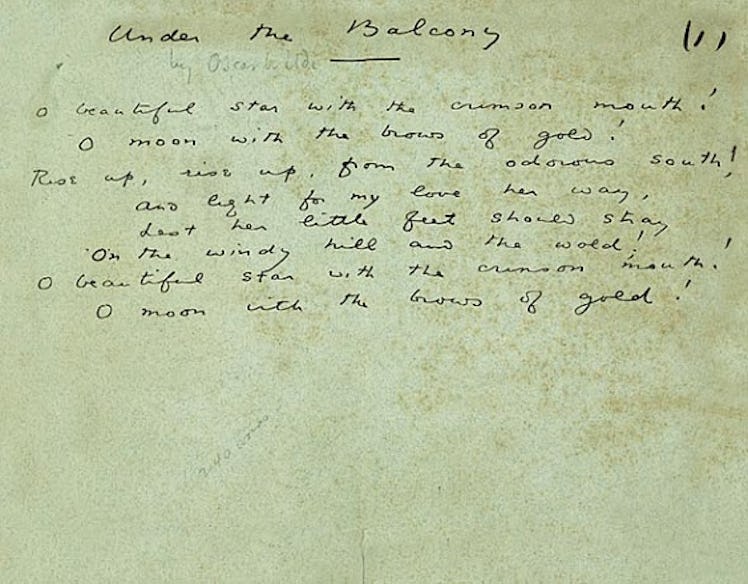 Under the Balcony (1)
by Oscar Wilde
O beautiful star with the crimson mouth!
O moon with the brows of gold!
Rise up, rise up, from the odorous south!
And light for my love her way,
Lest her little feet should stray
On the windy hill and the wold!
O beautiful star with the crimson mouth!
O moon with the brows of gold!